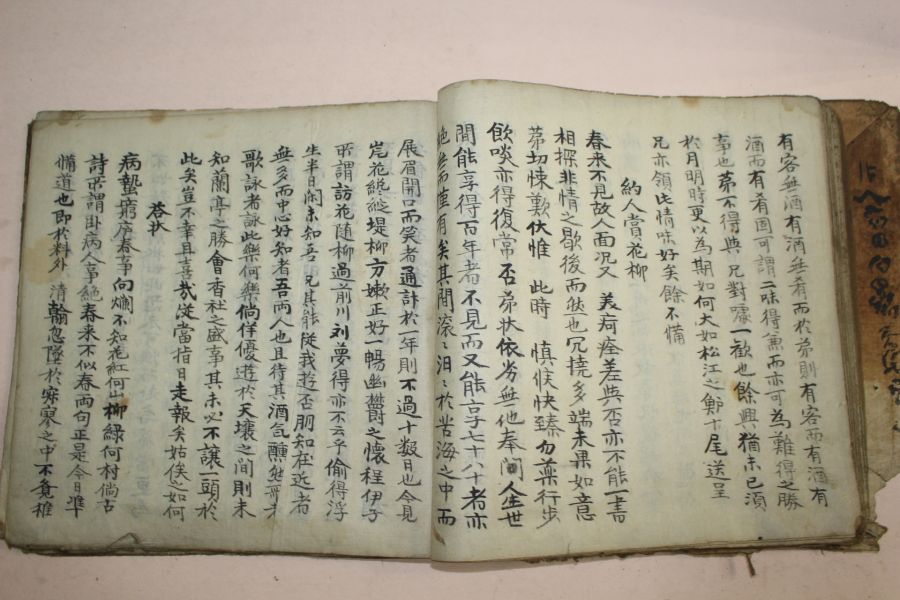 有客無酒有酒無肴而於弟則有客而有酒有
酒而有肴固可謂二味得兼而亦可為難得之勝
事也第不得與兄對酌一歡也餘興猶未已須
於月明時更以為期如何大如松江之鱸十尾送呈
兄亦領此情味好矣餘不備
約人賞花柳
春來不見故人面况又美痾痊差與否亦不能一書
相探非情之歇後而然也冗撓多端未果如意
第切悚歎伏惟此時愼候快臻勿藥行步
飲啖亦得復常否弟狀依劣無他奉聞人生世
間能享得百年者不見而又能享七十八十者亦
絶無而僅有矣其間滚滚汨汨於苦海之中而
展眉開口而笑者通計於一年則不過十數日也今見
岸花綻綻堤柳方嫩正好一暢幽欝之懷程伊子
所謂訪花隨柳過前川刘夢得亦不云乎偷得浮
生半日閑未知吾兄其能從我遊否朋知在近者
無多而中心好知者吾兩人也且待其酒氣醺然
歌詠者詠此樂何樂倘佯優遊於天壤之間則未
知蘭亭之勝會香社之盛事其未必不讓一頭於
此矣豈不幸且喜哉從當指日走報矣姑俟之如何
答狀
病蟄窮庐春事向爛不知花紅何山柳綠何村倘古
詩所謂卧病人事絶春来不似春两句正是今日準
備道也即於料外清翰忽墜於寂寥之中不覺推